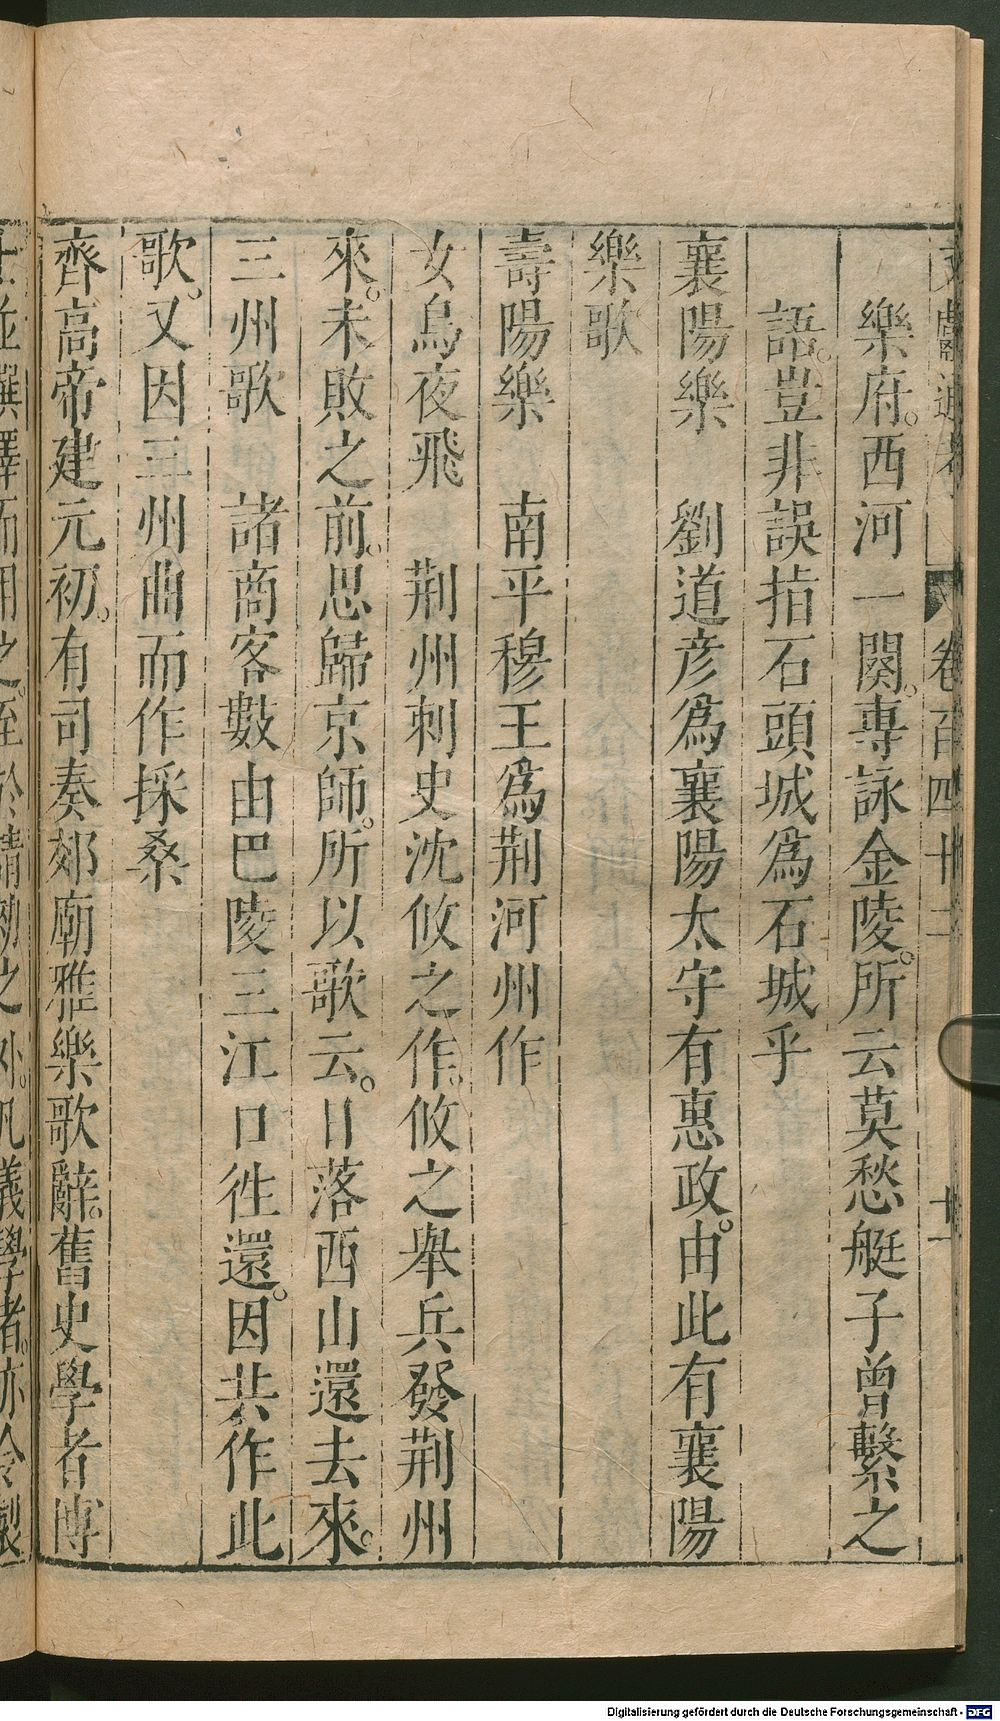 文獻通考 卷百四十二 廿一
樂府。西河一闋。專詠金陵。所云莫愁艇子曾繫之
語。豈非誤指石頭城爲石城乎
襄陽樂 劉道彦爲襄陽太守有惠政。由此有襄陽
樂歌
壽陽樂 南平穆王爲荆河州作
女烏夜飛 荆州刺史沈攸之作。攸之舉兵發荆州
來。未敗之前。思歸京師。所以歌云。日落西山還去來。
三州歌 諸商客數由巴陵三江口徃還。因共作此
歌。又因三州曲而作採桑
齊高帝建元初。有司奏郊廟雅樂歌辭。舊史學者博
士並撰擇而用之。至於請勑之外。凡義學者。亦令製
Digitalisierung gefördert durch die Deutsche Forschungsgemeinschaft - DFG